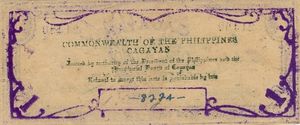 COMMONWEALTH OF THE PHILIPPINES
CAGAYAN
Issued by authority of the President of the Philippines and the
Provincial Board of Cagayan
Refusal to accept this note is punishable by law
1 1